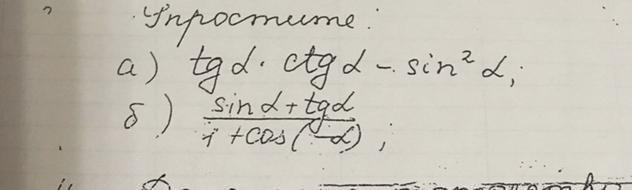 Упростите:
а) tg α · ctg α – sin² α;
б) (sin α + tg α) / (1 + cos(–α));